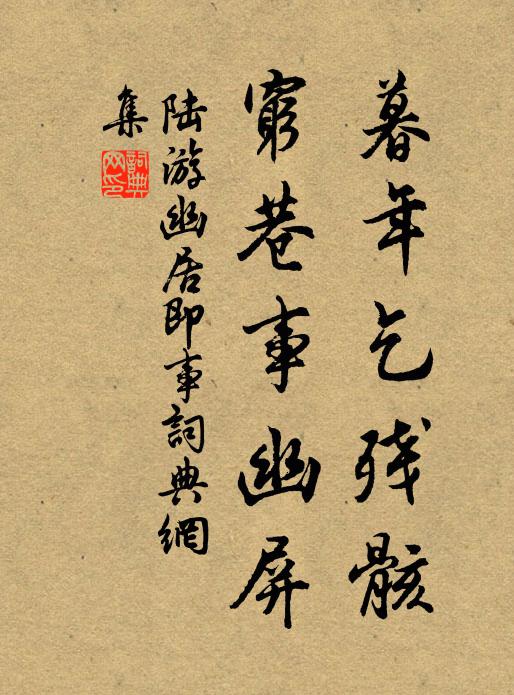 暮年乞残骸
窮巷事幽屏
陆游幽居即事詞典網
集
詞典
网印